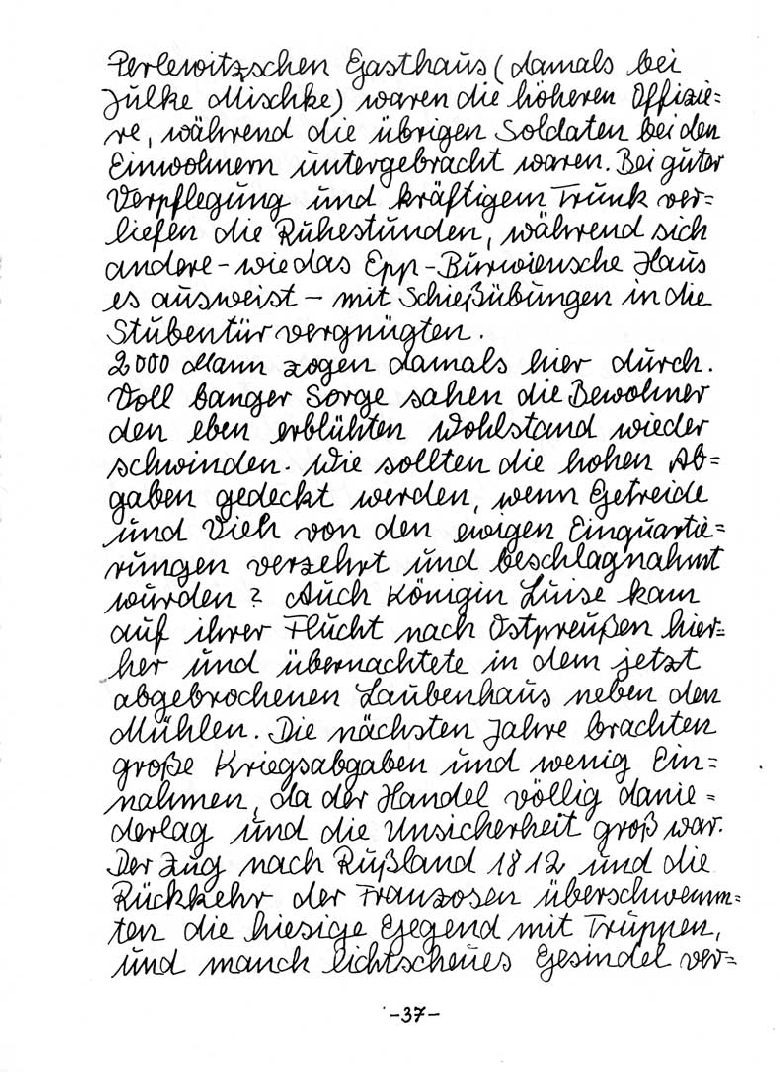 Perlewitzschen Gasthaus (damals bei
Julke Mischke) waren die höheren Offizie=
re, während die übrigen Soldaten bei den
Einwohnern untergebracht waren. Bei guter
Verpflegung und kräftigem Trunk ver=
liefen die Ruhestunden, während sich
andere - wie das Epp-Burwiensche Haus
es ausweist - mit Schießübungen in die
Stubentür vergnügten.
2000 Mann zogen damals hier durch.
Voll banger Sorge sahen die Bewohner
den eben erblühten Wohlstand wieder
schwinden. Wie sollten die hohen Ab=
gaben gedeckt werden, wenn Getreide
und Vieh von den ewigen Einquartie=
rungen verzehrt und beschlagnahmt
wurden? Auch Königin Luise kam
auf ihrer Flucht nach Ostpreußen hier=
her und übernachtete in dem jetzt
abgebrochenen Laubenhaus neben den
Mühlen. Die nächsten Jahre brachten
große Kriegsabgaben und wenig Ein=
nahmen, da der Handel völlig danie=
derlag und die Unsicherheit groß war.
Der Zug nach Rußland 1812 und die
Rückkehr der Franzosen überschwemm=
ten die hiesige Gegend mit Truppen,
und manch lichtscheues Gesindel ver=
-37-